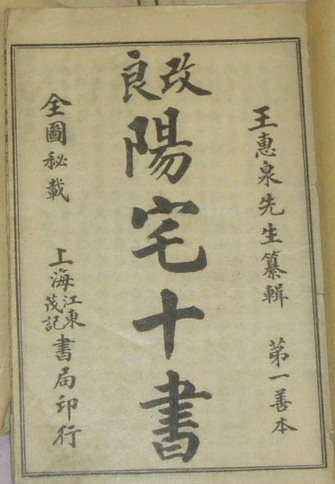 王惠泉先生纂輯 第一善本
改良
陽宅十書
全圖秘載 上海江東茂記書局印行